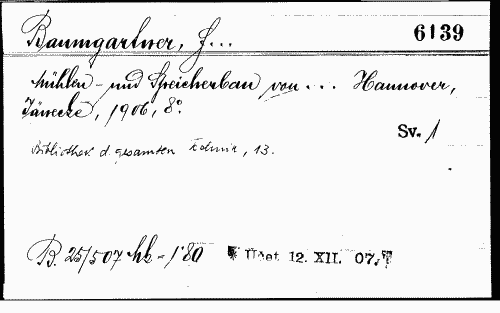 Baumgartner, J...
6139
Mühlen- und Speicherbau von ... Hannover,
Jänecke, 1906, 8°.
Sv. 1
Bibliothek d. gesamten Technik, 13.
B. 25/507 hk - 1'80
12. XII. 07.